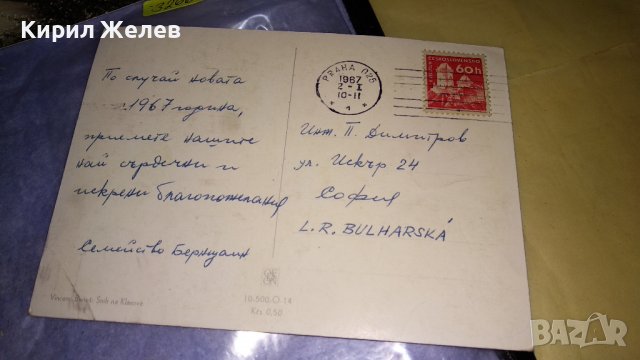 Кирил Желев
По случай новата
1967 година,
приемете нашите
най сърдечни и
искрени благопожелания
Семейство
PRAHA 025
1967
2-I
10-11
1
ČESKOSLOVENSKO
60h
Инж. П. Димитров
ул. Искър 24
София
L.R. BULHARSKÁ
10-500-O-14
Kčs 0,50
BAZAR
bg